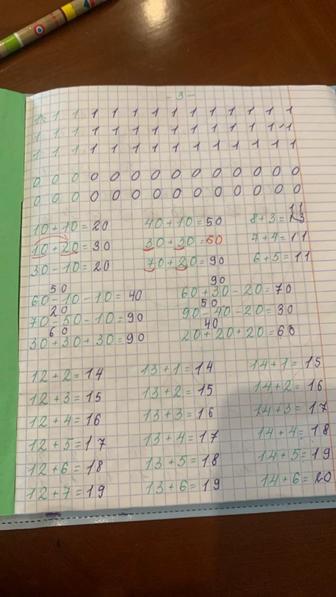 - 3 -
1 1 1 1 1 1 1 1 1 1 1 1 1 1
1 1 1 1 1 1 1 1 1 1 1 1 1 1
1 1 1 1 1 1 1 1 1 1 1 1 1 1
0 0 0 0 0 0 0 0 0 0 0 0 0 0
0 0 0 0 0 0 0 0 0 0 0 0 0 0
11
10+10=20 40+10=50 8+3=13
10+20=30 30+30=60 7+4=11
30-10=20 70+20=90 6+5=11
50 90
60-10-10=40 60+30-20=70
20 50
70-50-10=90 90-40-20=30
60 40
30+30+30=90 20+20+20=60
12+2=14 13+1=14 14+1=15
12+3=15 13+2=15 14+2=16
12+4=16 13+3=16 14+3=17
12+5=17 13+4=17 14+4=18
12+6=18 13+5=18 14+5=19
12+7=19 13+6=19 14+6=20